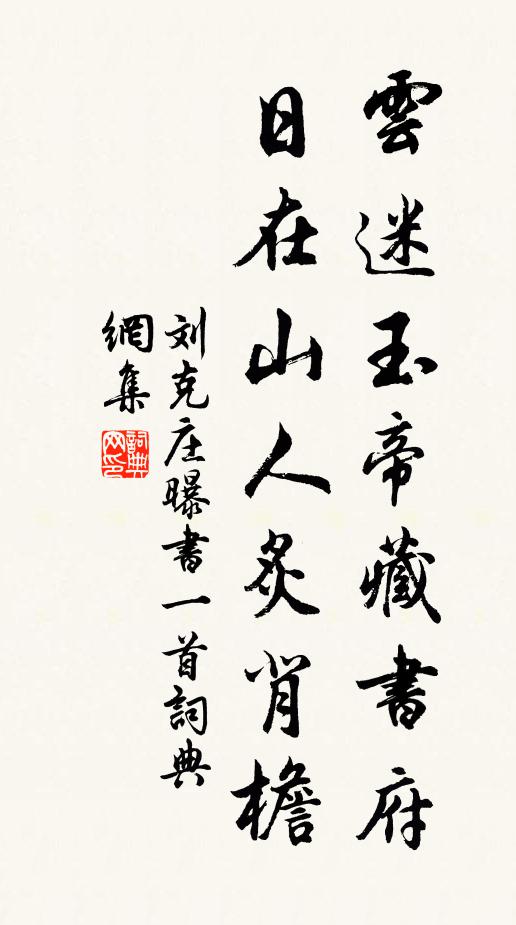 雲迷玉帝藏書府
日在山人炙背檐
刘克庄曝書一首詞典
網集
詞典网印